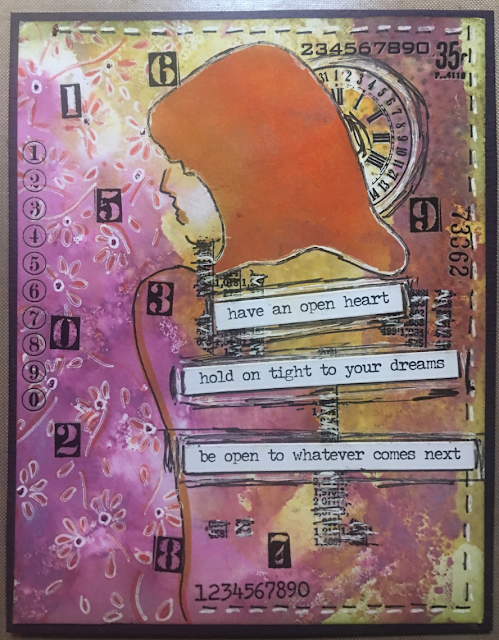 234567890
35r
P..4110
6
1
1
2
3
4
5
6
7
8
9
0
5
9
73062
3
have an open heart
0
hold on tight to your dreams
2
be open to whatever comes next
8
7
1234567890